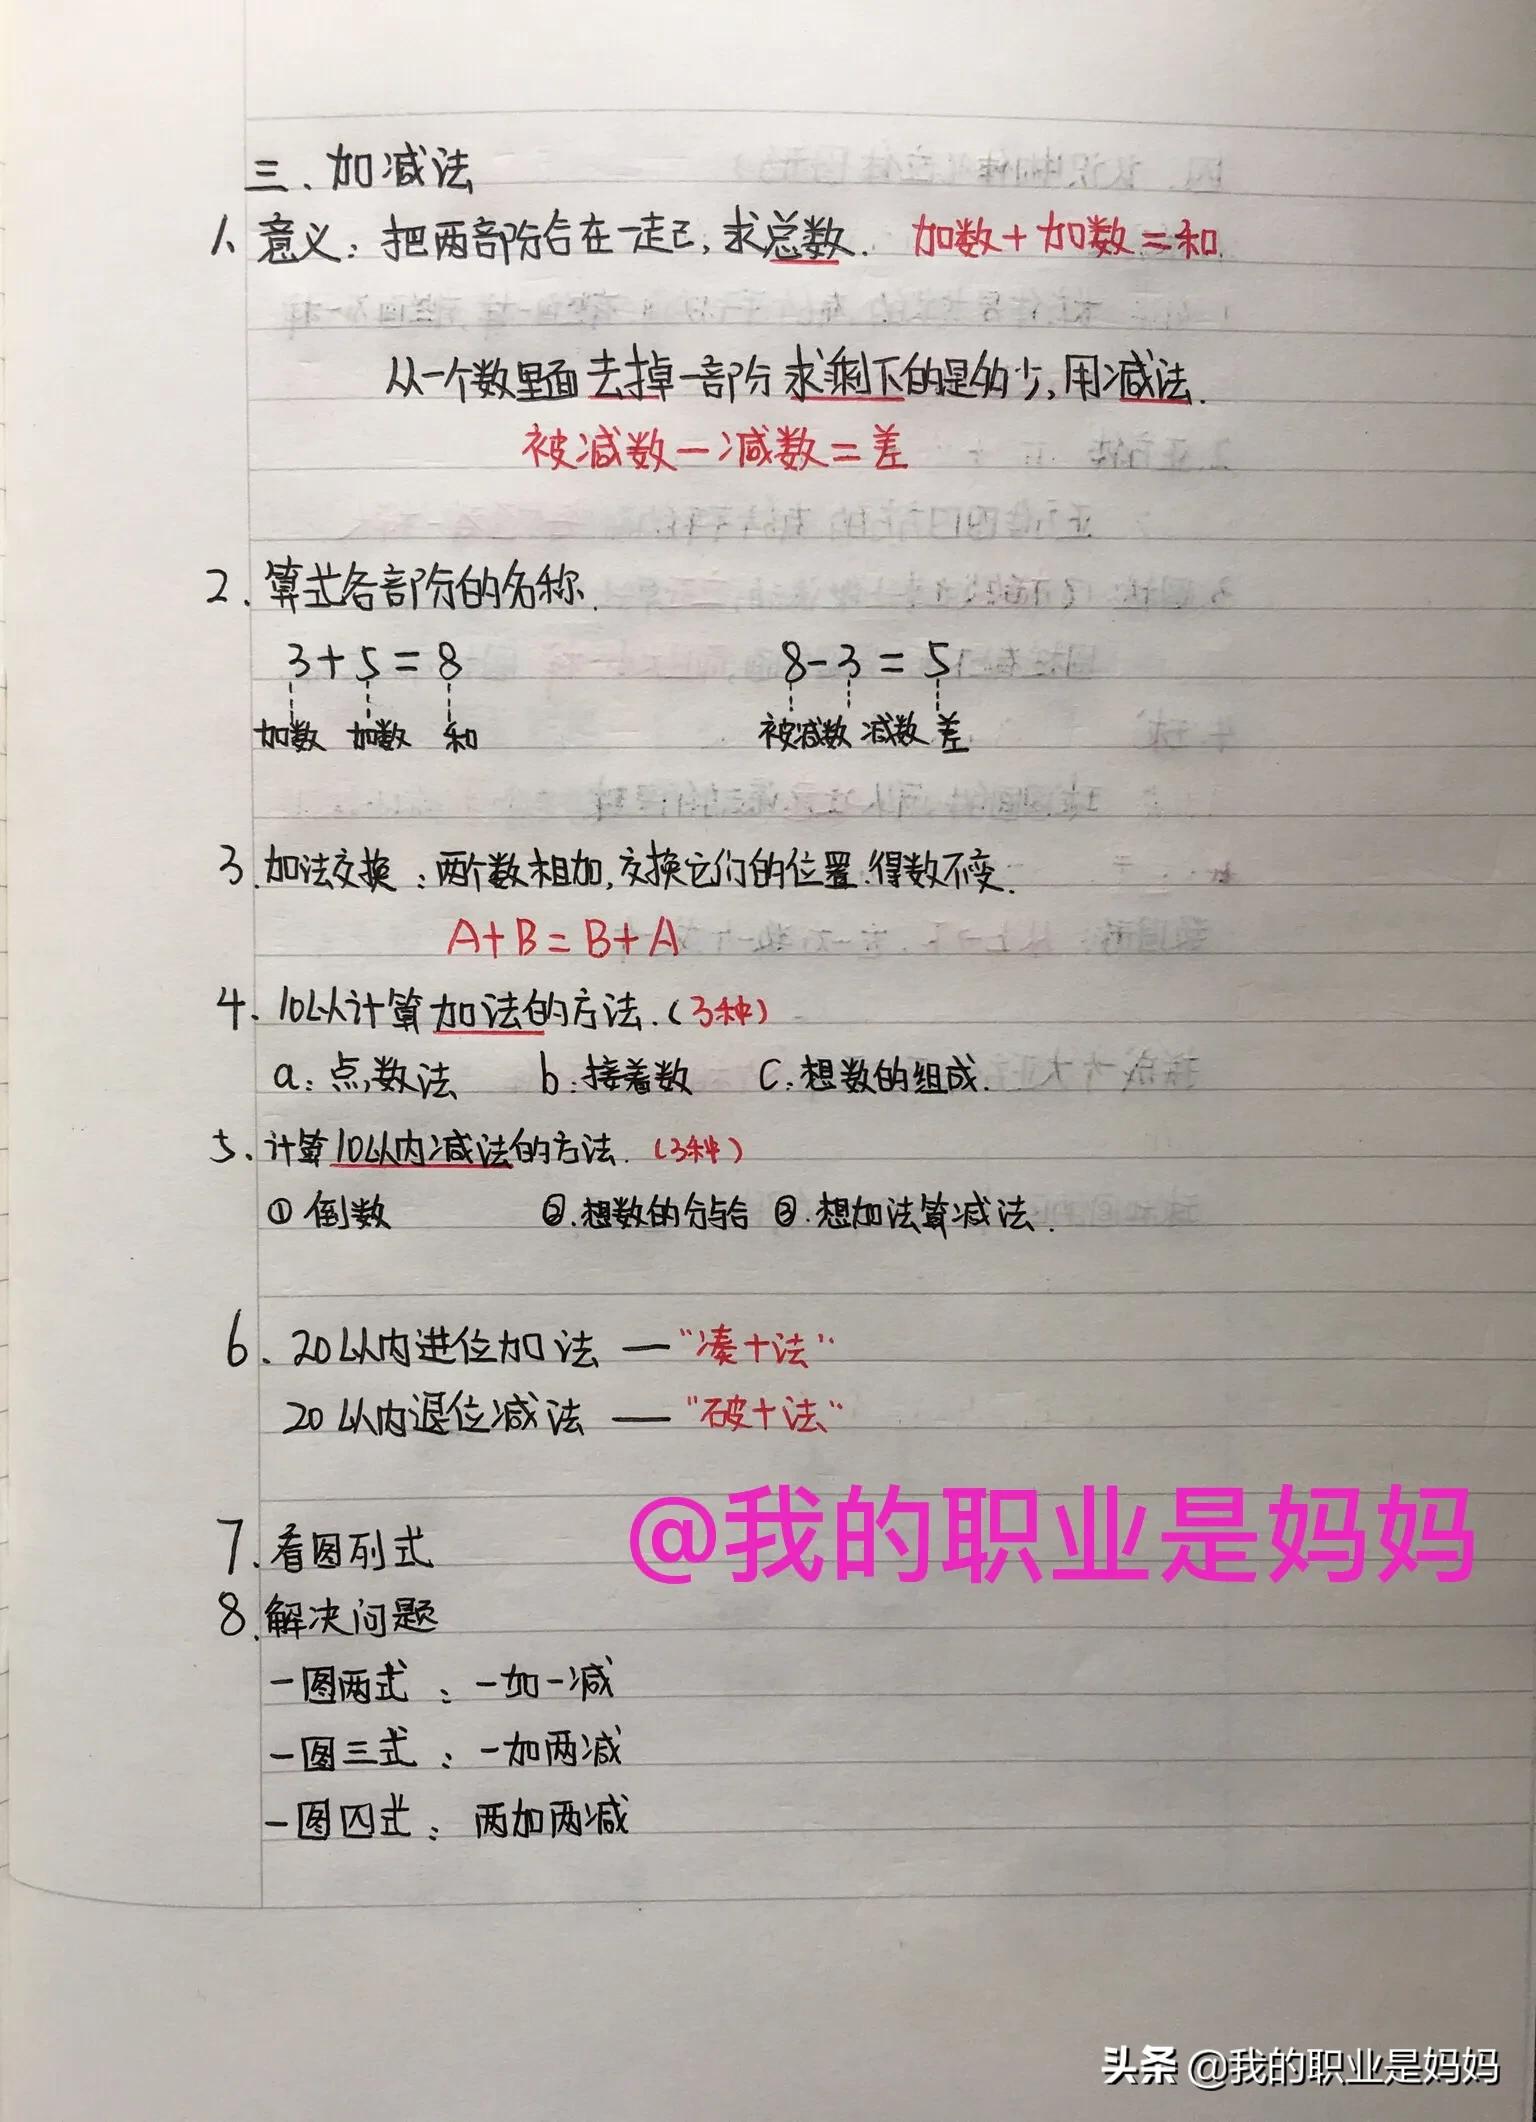 三、加减法
1、意义：把两部分合在一起，求总数. 加数+加数=和.
从一个数里面去掉一部分求剩下的是多少,用减法.
被减数－减数=差
2.算式各部分的名称.
3+5=8 8-3=5
加数 加数 和 被减数 减数 差
3.加法交换：两个数相加,交换它们的位置.得数不变.
A+B=B+A
4.10以计算加法的方法.(3种)
a:点数法 b:接着数 c:想数的组成.
5、计算10以内减法的方法.(3种)
①倒数 ②.想数的分与合 ③.想加法算减法.
6.20以内进位加法 — “凑十法”
20以内退位减法 — “破十法”
@我的职业是妈妈
7.看图列式
8.解决问题
一图两式：一加一减
一图三式：一加两减
一图四式：两加两减
头条 @我的职业是妈妈